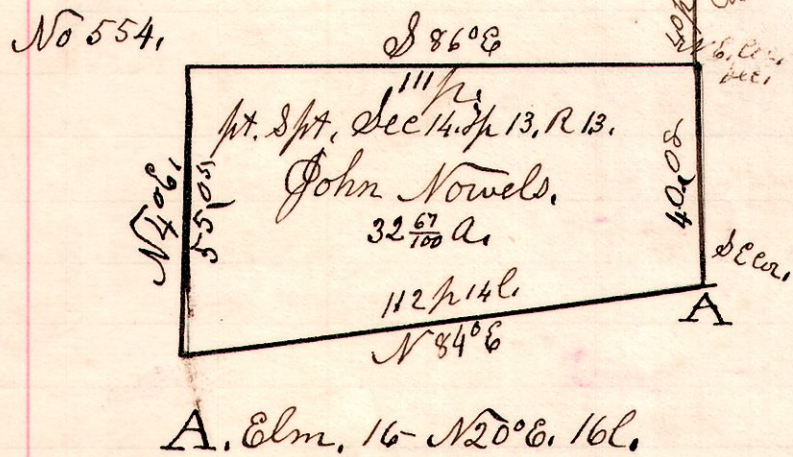 No 554.
S 86° E
111 p.
pt. Spt, Sec 14. Tp 13. R 13.
John Nowels.
32 67/100 A.
N 4° E.
55.05
40.08
S E Cor.
112 p 14 l.
N 84° E
A
A. Elm. 16 - N 20° E. 16 l.